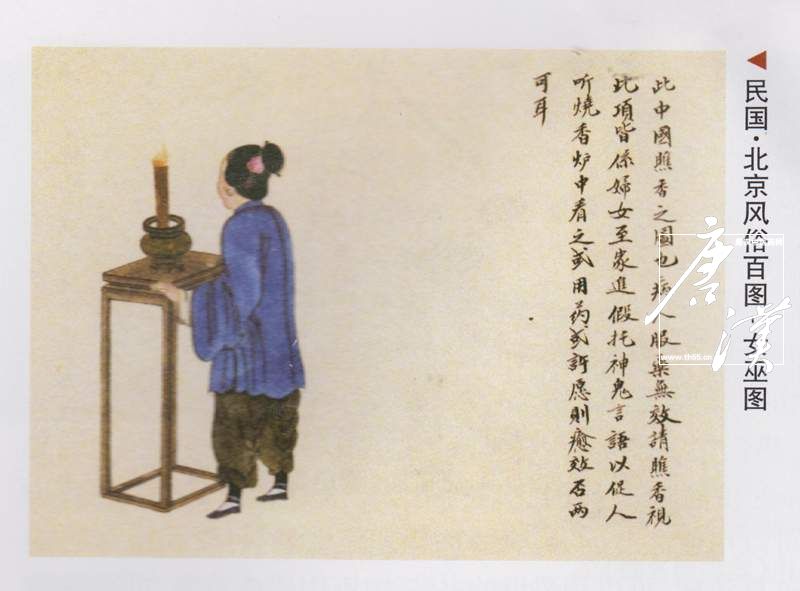 民国·北京风俗百图·女巫图
此中國瞧香之圖也病人服藥無效請瞧香視
此項皆係婦女至家進假托神鬼言語以促人
听燒香炉中看之或用药或許愿則癒效否两
可耳
唐漢
www.th55.cn